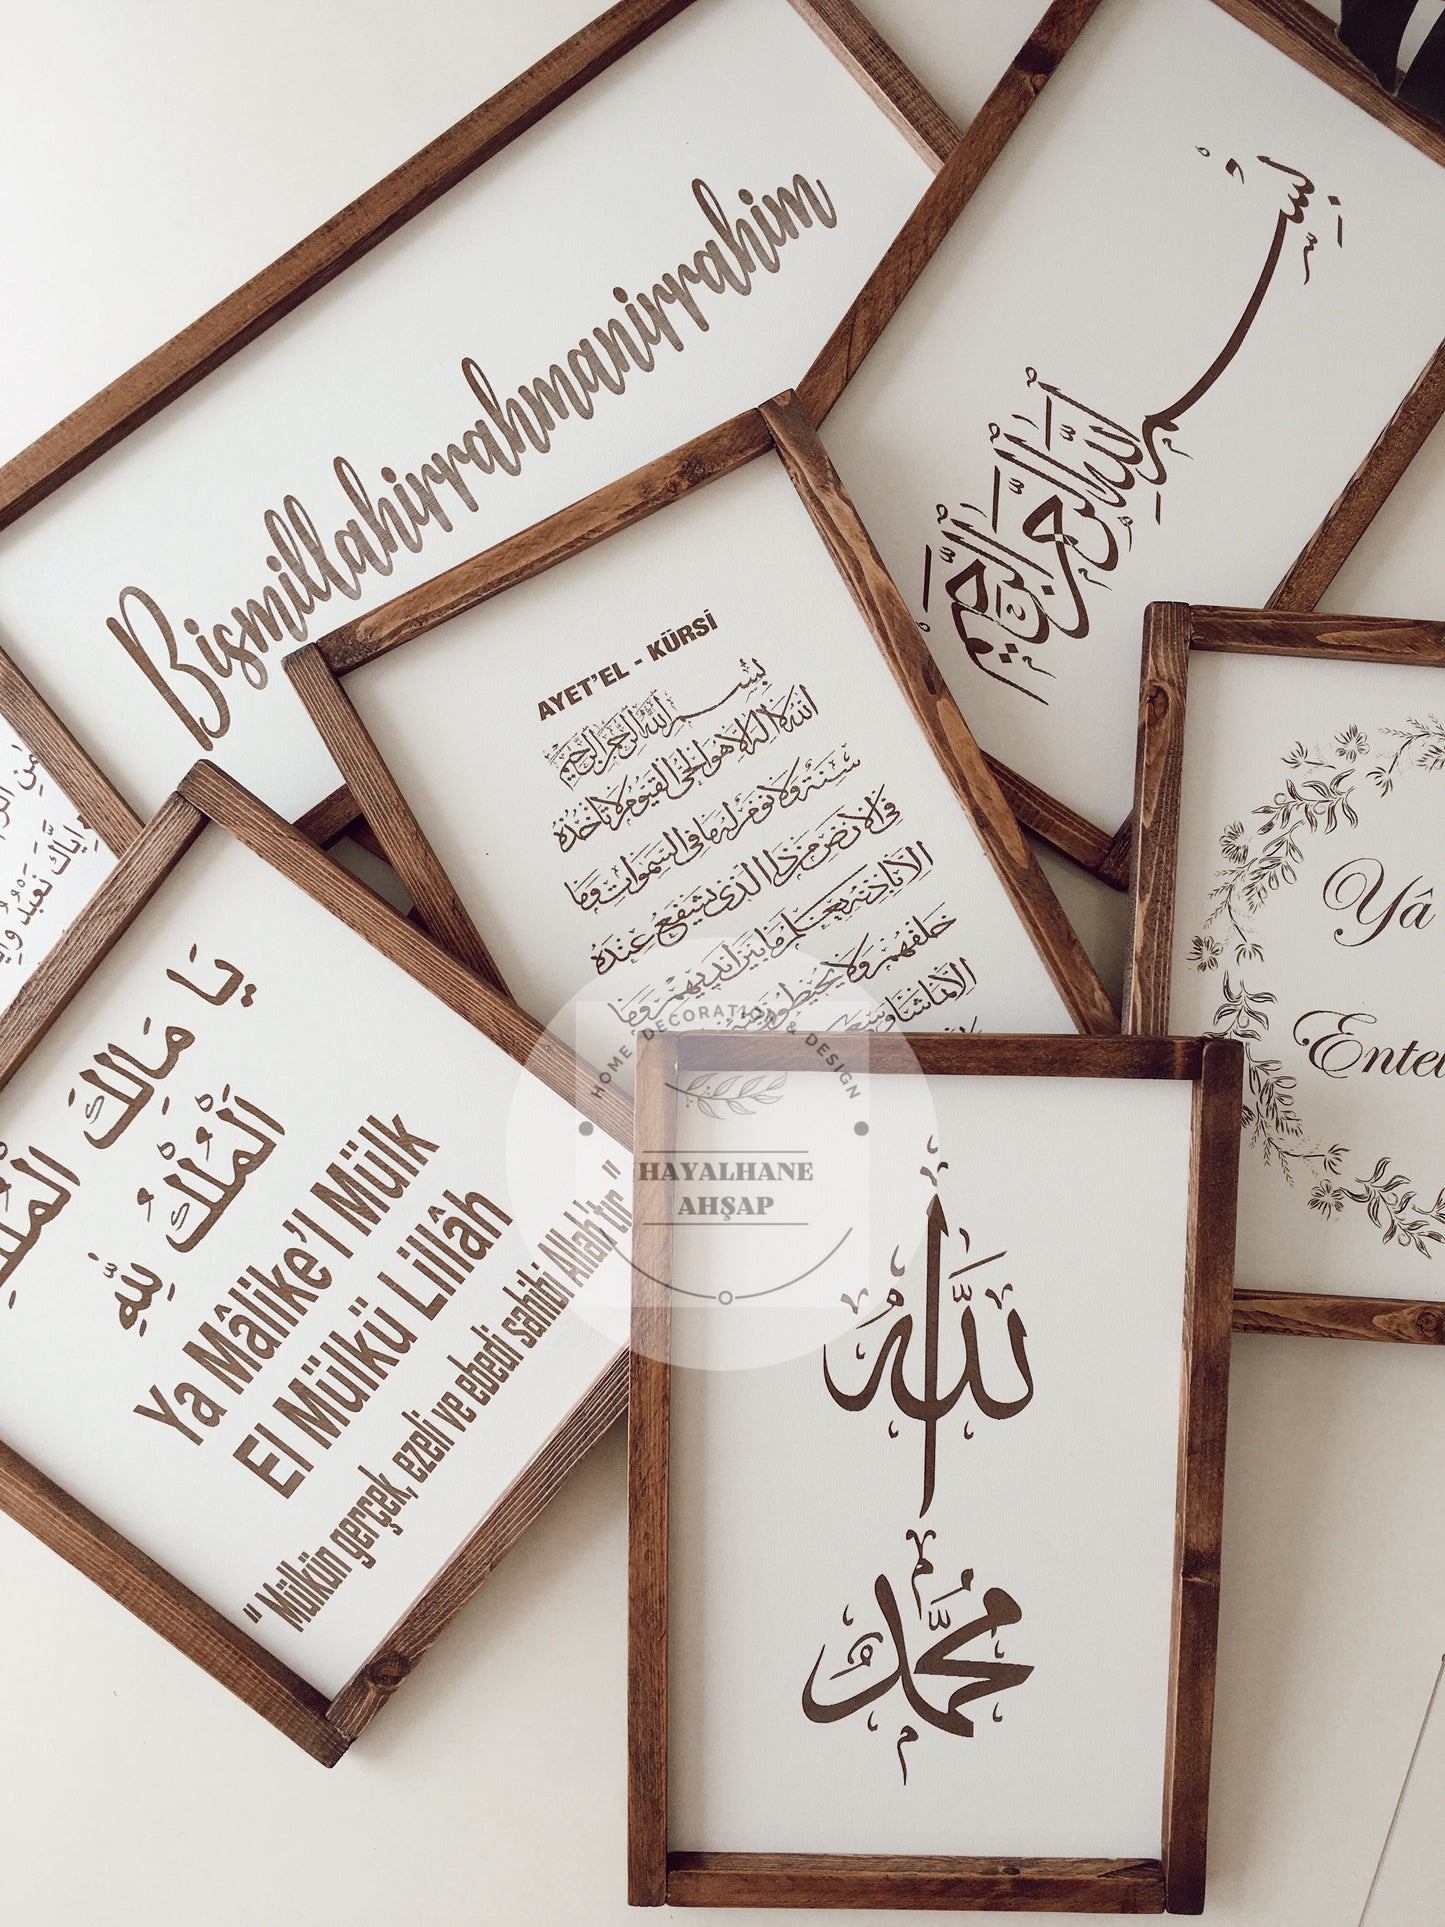 Bismillahirrahmanirrahim
بِسْمِ اللّٰهِ الرَّحْمٰنِ الرَّحِيمِ
AYET'EL - KÜRSİ
بِسْمِ اللّٰهِ الرَّحْمٰنِ الرَّحِيمِ
اَللّٰهُ لَا اِلٰهَ اِلَّا هُوَ الْحَيُّ الْقَيُّومُ لَا تَأْخُذُهُ
سِنَةٌ وَلَا نَوْمٌ لَهُ مَا فِي السَّمٰوَاتِ وَمَا
فِي الْاَرْضِ مَنْ ذَا الَّذِي يَشْفَعُ عِنْدَهُ
اِلَّا بِاِذْنِهِ يَعْلَمُ مَا بَيْنَ اَيْدِيهِمْ وَمَا
خَلْفَهُمْ وَلَا يُحِيطُونَ بِشَيْءٍ
اِلَّا بِمَا شَاءَ وَسِعَ
اِيَّاكَ نَعْبُدُ
يَا مَالِكَ الْمُلْكِ
اَلْمُلْكُ لِلّٰهِ
Ya Mâlike'l Mülk
El Mülkü Lillâh
" Mülkün gerçek, ezeli ve ebedi sahibi Allah'tır "
Yâ
HOME DECORATION & DESIGN
HAYALHANE
AHŞAP
اللّٰه
محمد